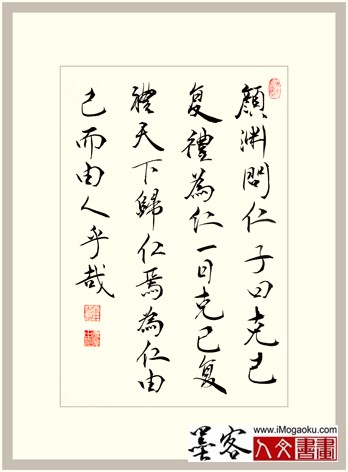 顏淵問仁子曰克己
复禮為仁一日克己复
禮天下歸仁焉為仁由
己而由人乎哉
www.iMogaoku.com
墨客人文書畫